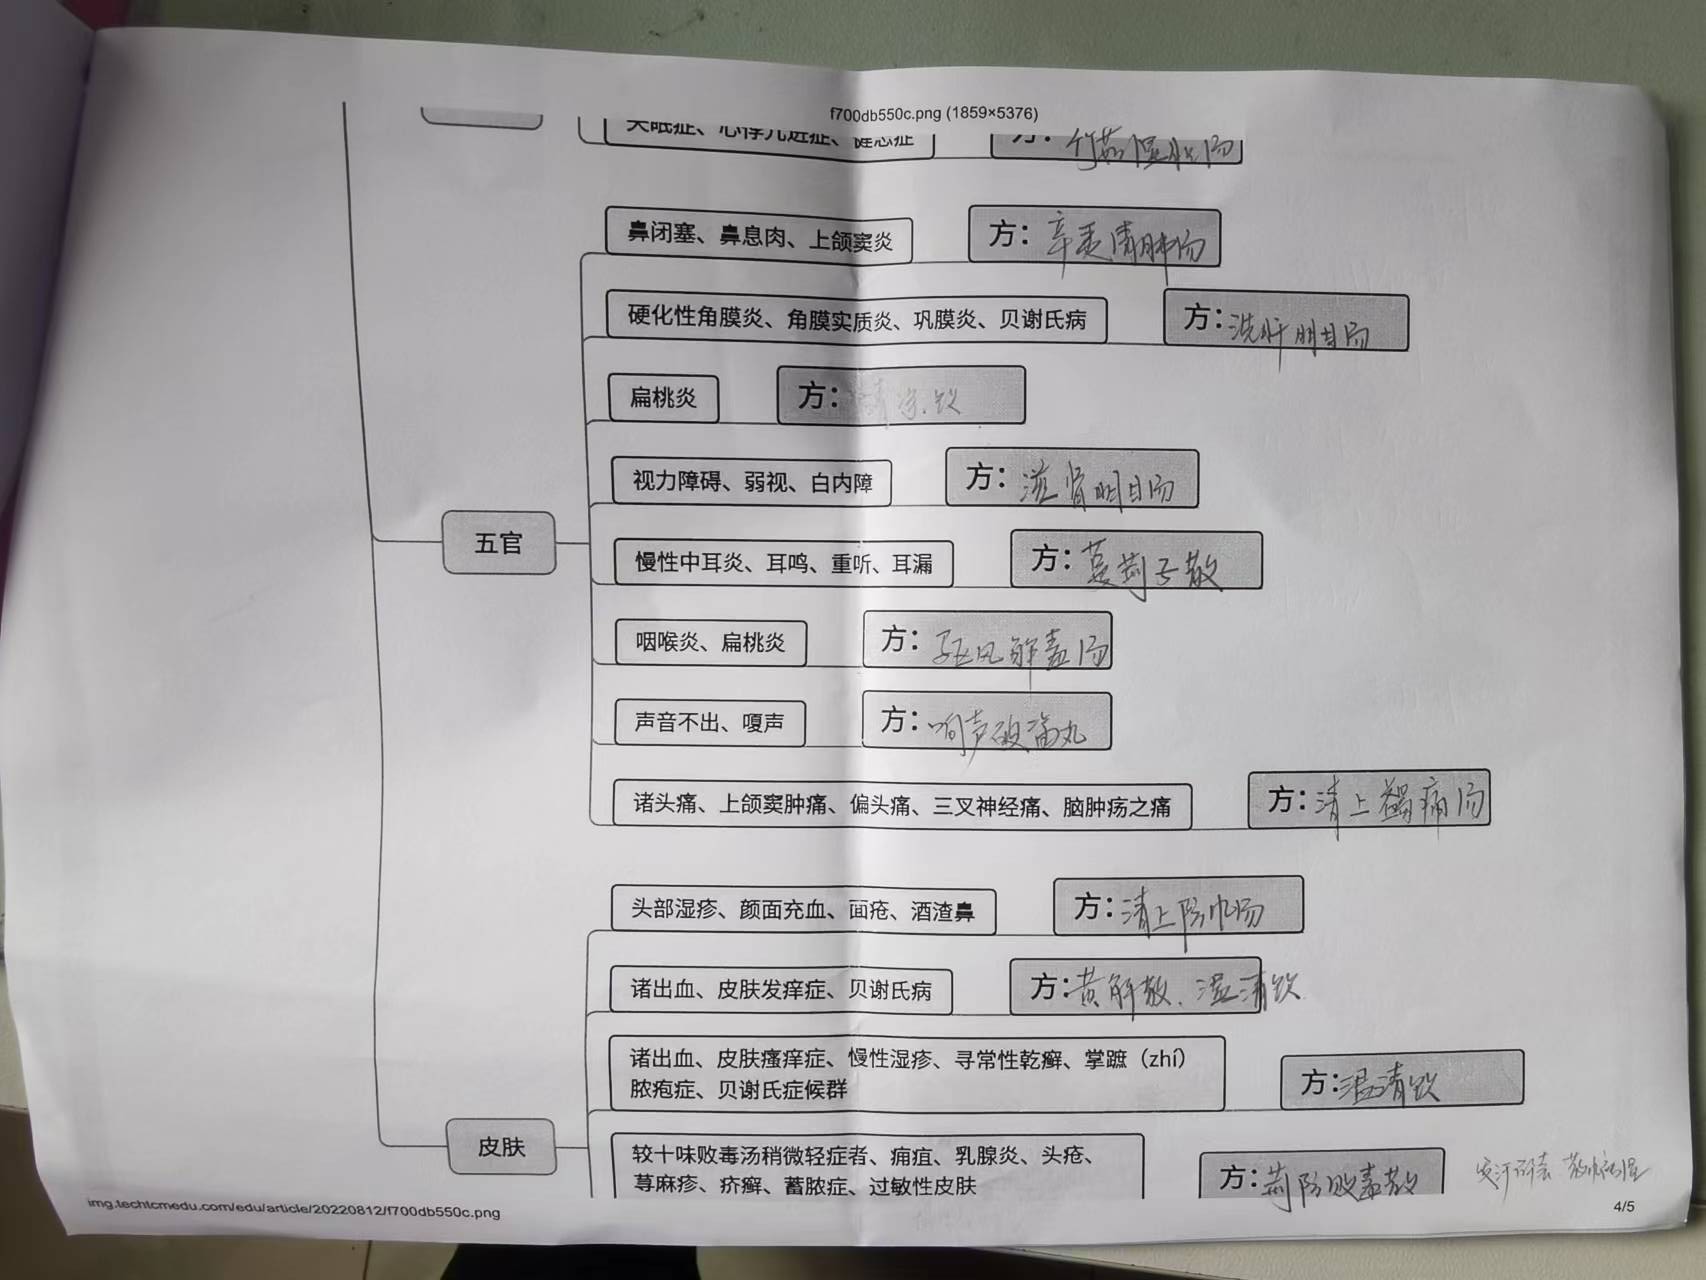 f700db550c.png (1859×5376)
失眠症、心悸亢进症、健忘症
方：竹茹温胆汤
鼻闭塞、鼻息肉、上颌窦炎
方：辛夷清肺汤
硬化性角膜炎、角膜实质炎、巩膜炎、贝谢氏病
方：洗肝明目汤
扁桃炎
方：清凉饮
视力障碍、弱视、白内障
方：滋肾明目汤
五官
慢性中耳炎、耳鸣、重听、耳漏
方：蔓荆子散
咽喉炎、扁桃炎
方：驱风解毒汤
声音不出、嗄声
方：响声破笛丸
诸头痛、上颌窦肿痛、偏头痛、三叉神经痛、脑肿疡之痛
方：清上蠲痛汤
头部湿疹、颜面充血、面疮、酒渣鼻
方：清上防风汤
诸出血、皮肤发痒症、贝谢氏病
方：黄解散、温清饮
诸出血、皮肤瘙痒症、慢性湿疹、寻常性乾癣、掌蹠（zhí）
脓疱症、贝谢氏症候群
方：温清饮
皮肤
较十味败毒汤稍微轻症者、痈疽、乳腺炎、头疮、
荨麻疹、疥癣、蓄脓症、过敏性皮肤
方：荆防败毒散
发汗解表
img.techtcmedu.com/edu/article/20220812/f700db550c.png
4/5